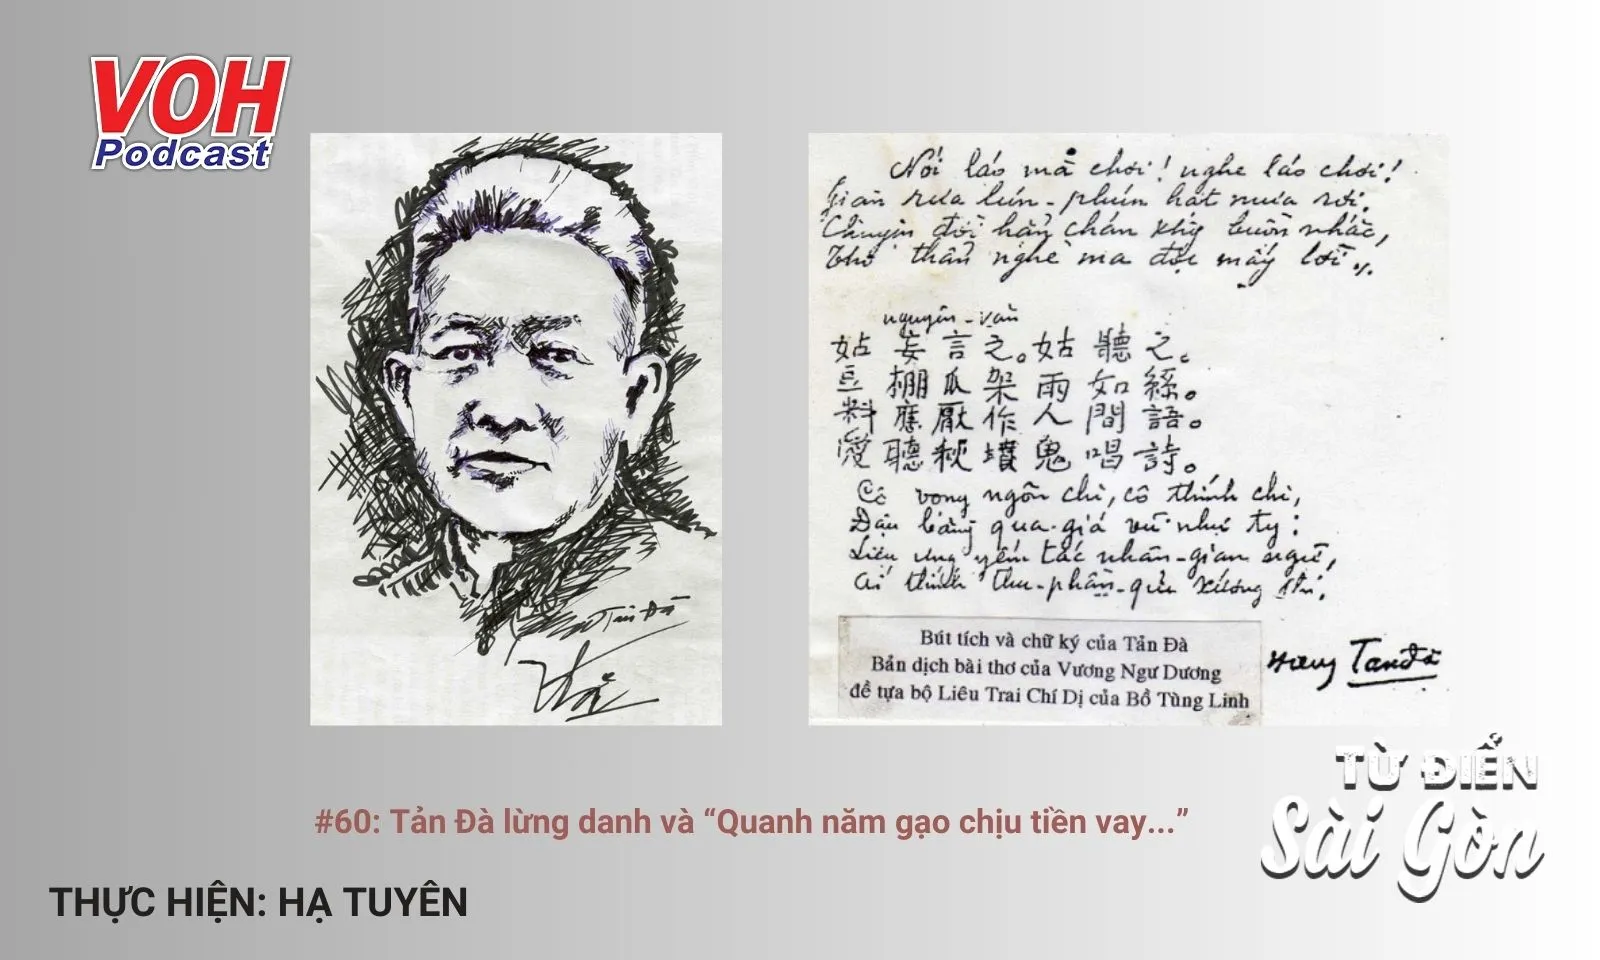 VOH
Podcast
Nói láo mà chơi! nghe láo chơi!
Giàn dưa lún-phún hạt mưa rơi,
Chuyện đời hẳn chán khg buồn nhắc,
Thơ thẩn nghe ma đọc mấy lời
nguyên-văn
姑妄言之。姑聽之。
豆棚瓜架雨如絲。
料應厭作人間語。
愛聽秋墳鬼唱詩。
Cô vọng ngôn chi, cô thính chi,
Đậu bàng qua-giá vũ như ty;
Liệu ưng yếm tác nhân-gian ngữ,
Ái thính thu-phần-quỉ xướng thi.
Bút tích và chữ ký của Tản Đà
Bản dịch bài thơ của Vương Ngư Dương
đề tựa bộ Liêu Trai Chí Dị của Bồ Tùng Linh
Tản Đà
Tản Đà
TỪ ĐIỂN
Sài Gòn
#60: Tản Đà lừng danh và “Quanh năm gạo chịu tiền vay...”
THỰC HIỆN: HẠ TUYÊN